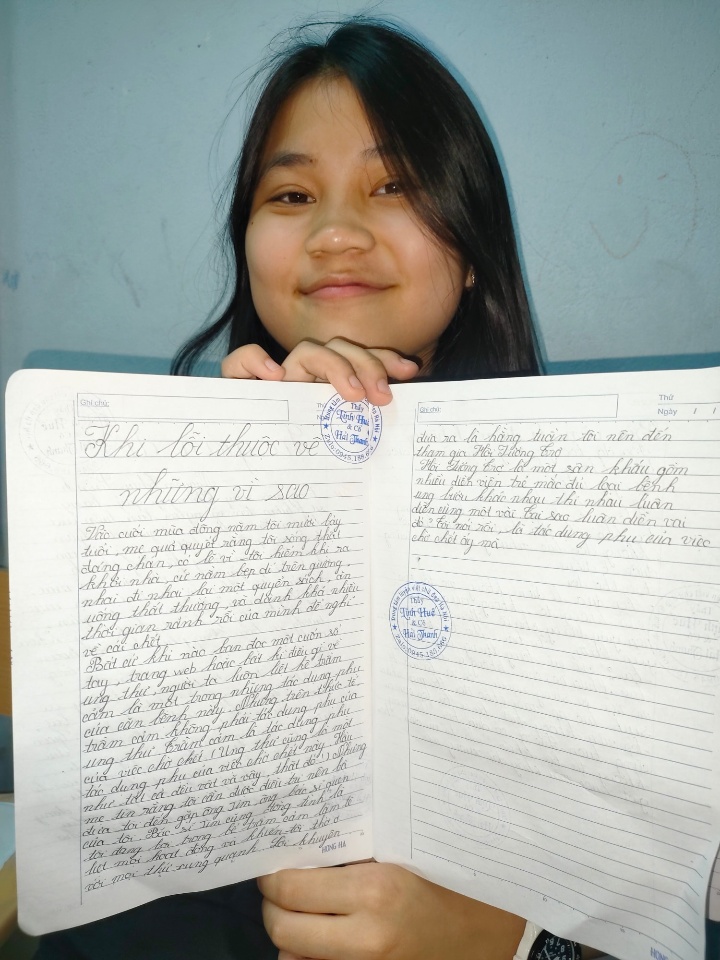 Ghi chú:
Khi lỗi thuộc về
những vì sao
Vào cuối mùa đông năm tôi mười bảy
tuổi, mẹ quả quyết rằng tôi sống thật
đáng chán, có lẽ vì tôi hiếm khi ra
khỏi nhà, cứ nằm bẹp dí trên giường,
nhai đi nhai lại một quyển sách, ăn
uống thất thường, và dành khá nhiều
thời gian rảnh rỗi của mình để nghĩ
về cái chết.
Bất cứ khi nào bạn đọc một cuốn sổ
tay, trang web hoặc bất kì điều gì về
ung thư, người ta luôn liệt kê trầm
cảm là một trong những tác dụng phụ
của căn bệnh này. Nhưng trên thực tế
trầm cảm không phải tác dụng phụ của
ung thư. Trầm cảm là tác dụng phụ
của việc chờ chết. (Ung thư cũng là một
tác dụng phụ của việc chờ chết này. Hầu
như tất cả đều vật vã vậy, thật đó!) Nhưng
mẹ tin rằng tôi cần được điều trị nên đã
đưa tôi đến gặp ông Jim ông bác sĩ quen
của tôi. Bác sĩ Jim cũng đồng tình là
tôi đang tôi trong bể trầm cảm làm tê
liệt mọi hoạt động và khiến tôi thờ ơ
với mọi thứ xung quanh. Lời khuyên
HONG HA
Ghi chú:
Thứ
Ngày / /
đưa ra là hằng tuần tôi nên đến
tham gia Hội Tương Trợ
Hội Tương Trợ là một sân khấu gồm
nhiều diễn viên trẻ mắc đủ loại bệnh
ung bướu khác nhau thi nhau luân
diễn cùng một vai. Tại sao luân diễn vai
đó? Tôi nói rồi, là tác dụng phụ của việc
chờ chết ấy mà.
Thầy
Tịnh Huế
& Cô
Hải Thanh
Zalo: 0945.188.069
HONG